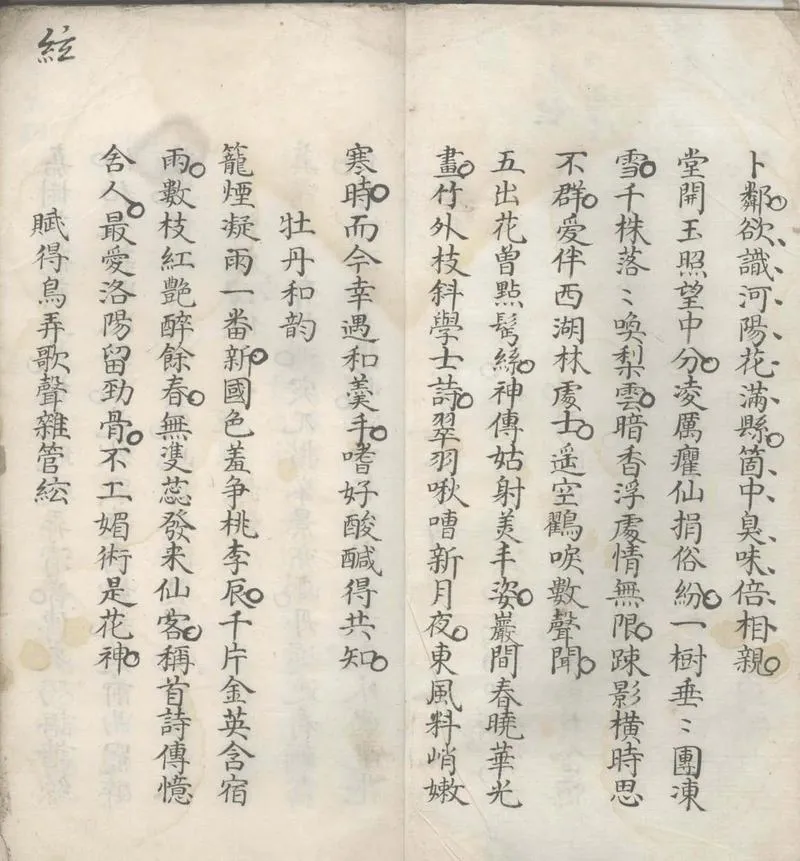 卜鄰欲識河陽花滿縣箇中臭味倍相親
堂開玉照望中分凌厲癯仙捐俗紛一樹垂〻團凍
雪千株落〻喚梨雲暗香浮處情無限踈影橫時思
不群愛伴西湖林處士遥空鸛唳數聲聞
五出花曾點髩絲神傳姑射美丰姿巖間春曉華光
畫竹外枝斜學士詩翠羽啾嘈新月夜東風料峭嫩
寒時而今幸遇和羹手嗜好酸醎得共知
牡丹和韵
籠煙凝雨一番新國色羞争桃李辰千片金英含宿
雨數枝紅艷醉餘春無雙蕊發来仙客稱首詩傳憶
舍人最愛洛陽留勁骨不工媚術是花神
賦得鳥弄歌聲雜管絃
絃